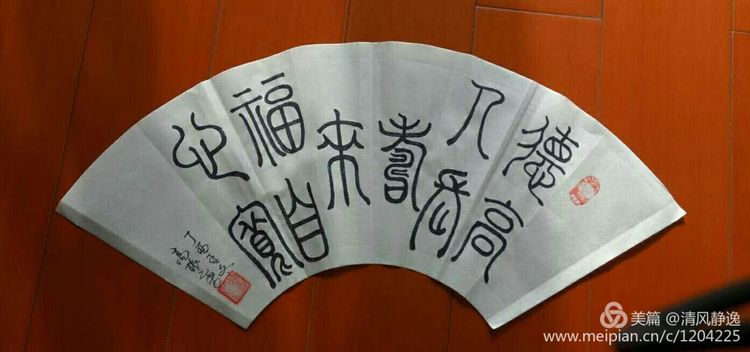 德高
人長
壽
心寬
福自
來
丁酉
美篇 @清风静逸
www.meipian.cn/c/1204225